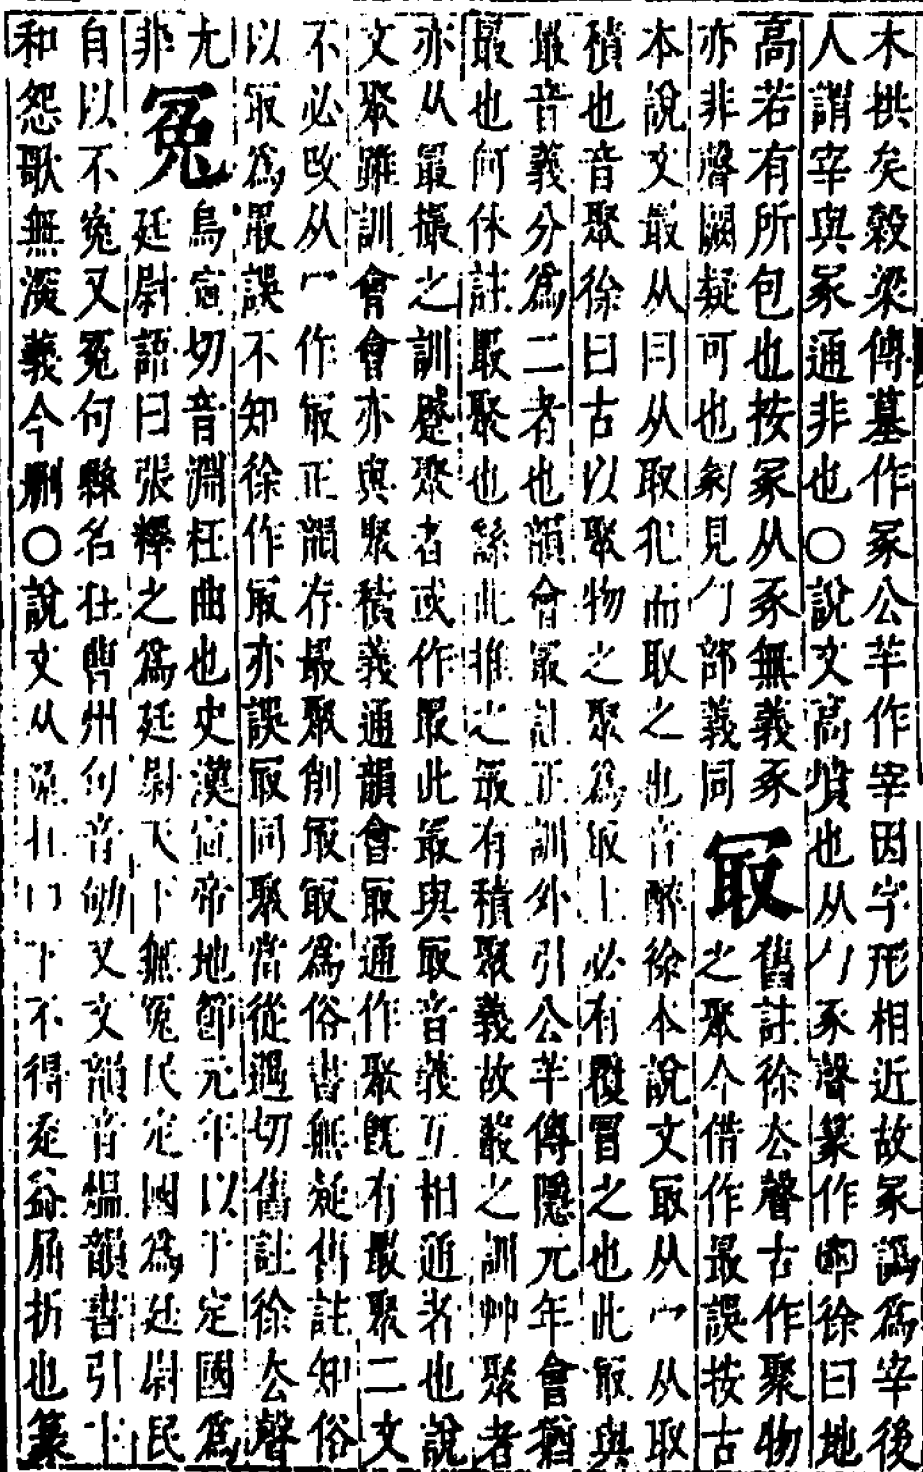 木拱矣穀梁傳墓作冢公羊作宰因字形相近故冢譌爲宰後
人謂宰與冢通非也○說文高墳也从勹豖聲篆作徐曰地
高若有所包也按冢从豖無義豖
亦非聲闕疑可也見勹部義同
冣
舊註徐去聲古作聚物
之聚今借作最誤按古
本說文最从冃从取犯而取之也音醉徐本說文冣从冖从取
積也音聚徐曰古以聚物之聚爲冣上必有覆冒之也此冣與
最音義分爲二者也韻會最註正訓外引公羊傳隱元年會猶
最也何休註最聚也繇此推之最有積聚義故叢之訓艸聚者
亦从最撮之訓蹙聚者或作最此最與冣音義互相通者也說
文聚雖訓會會亦與聚積義通韻會冣通作聚旣有最聚二文
不必改从冖作冣正韻存最聚削冣冣爲俗書無疑舊註知俗
以冣爲最誤不知徐作冣亦誤冣同聚當從遇切舊註徐去聲
尤
非
冤
烏宣切音淵枉曲也史漢宣帝地節元年以于定國爲
廷尉語曰張釋之爲廷尉天下無冤民定國爲廷尉民
自以不冤又冤句縣名在曹州句音劬又文韻音熅韻書引卞
和怨歌無深義今刪○說文从兔在冂下不得走益屈折也篆